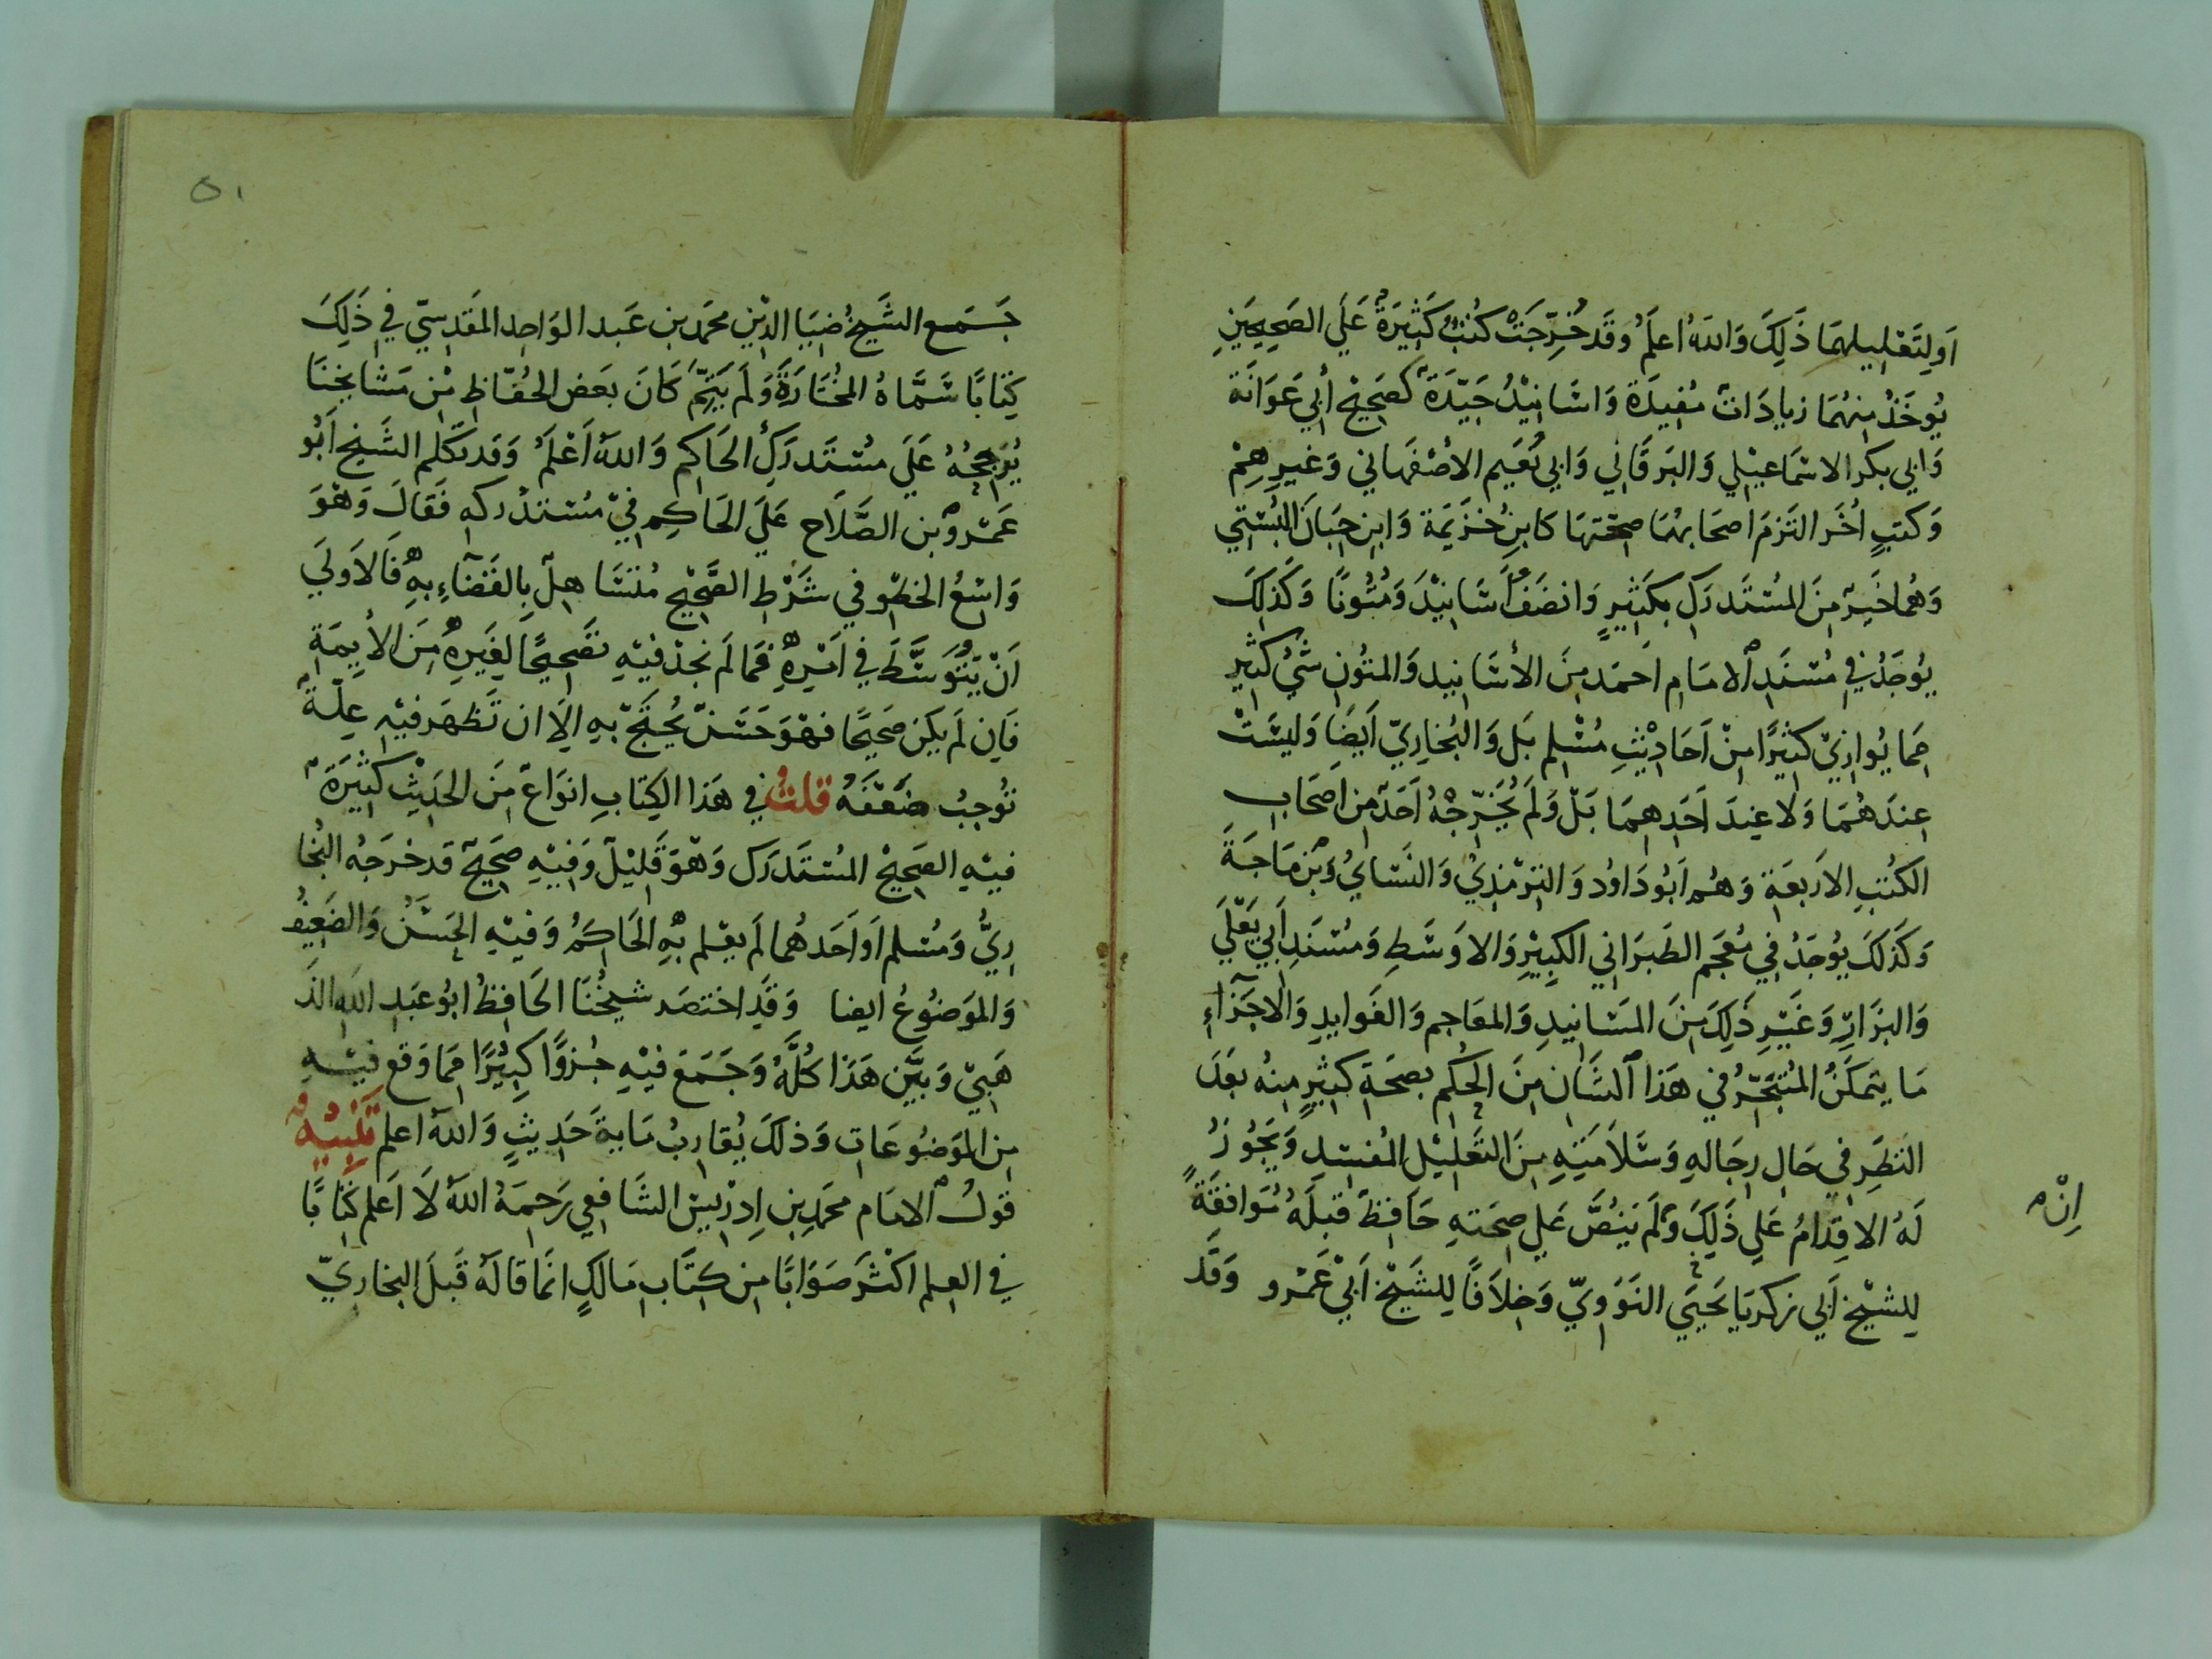 اَو لِتَعْلِيلِهمَا ذَلِكَ وَاللهُ اَعلَمُ وَقَد خُرِّجَتْ كُتُبٌ كَثِيرَةٌ عَلَي الصَحِيحَينِ
يُوخَذُ مِنهُمَا زيادَاتٌ مُفِيدَة وَاسَانِيْدُ جَيّدَةٌ كَصَحِيْحِ أبي عَوَانَة
وَابي بكر الاسمَاعِيْلي وَالبَرقَانِي وَابي نُعَيم الأصْفَهاني وَغيرِهِمْ
وَكتبٍ اُخَر التَزمَ اصحَابهُا صحّتهَا كَابنِ خزَيمَة وَابنِ حِبَان البُسْتِي
وَهُما خَيرٌ مِنَ المُسْتَدرَكِ بِكَثيرٍ وَانضَفُ اَسَانِيْدَ وَمُتُونًا وَكَذلِكَ
يُوجَدُ في مُسْنَدِ الامَامِ اَحمَد مِنَ الأسَانِيد وَالمتُونِ شيٌ كثيْرٍ
مِمَا يُوازيْ كثيْرًا مِنْ اَحَادِيْثِ مُسْلِم بَل وَالبُخارِيّ اَيضًا وَليسَتْ
عِندَهُمَا وَلا عِندَ اَحَدِهِمَا بَلْ وَلَم يُخَرّجْهُ اَحَدٌ مِن اصحَابِ
الكتُبِ الاَربَعَةِ وَهُم اَبُو دَاوُد وَالترْمِذِيْ وَالنَسَايُ وَبْن مَاجَةَ
وَكَذلكَ يُوجَدُ في مُعجَم الطَبَرَاني الكبِيْرِ وَالاوسَطِ وَمُسْنَدِ اَبي يَعْلَي
وَالبزَارِ وَغَيْرِ ذَلِكَ مِنَ المسَانِيدِ وَالمعَاجم وَالفَوايدِ وَالاجزَاءِ
مَا يتمَكنُ المُتبَحّرُ في هَذا الشَانِ مِنَ الحُكم بصحَةِ كثيرٍ مِنهُ بعَدَ
النَظَرِ في حَالِ رِجَالهِ وَسَلامَتِهِ مِنَ التَعلِيْل المُفسِدِ وَيَجُوزُ
لَهُ الاقدَامُ عَلي ذَلِكَ وَاِنْ لَم يَنُصَّ عَلي صِحَتهِ حَافِظٌ قَبلَهُ مُوَافقَةً
لِلشيْخ اَبي زكريَا يَحيَي النَوَوِيّ وَخِلاَفًا لِلشَيْخ اَبيْ عَمْرو وَقَد
جَمَع الشَيْخُ ضيَا الدِيْن محمَد بن عَبد الوَاحِد المَقدِسيّ في ذَلِكَ
كِتَابًا سَمَّاهُ المخُتَارَةَ وَلَم يَتِمّ كَانَ بعَض الحُفَّاظِ مْن مَشَايخنَا
يُرَجحُهُ عَلَي مُسْتَدرَكِ الحَاكِم وَاللهُ اَعْلَمُ وَقَد تكَلم الشَيخ اَبُو
عَمْرو بن الصَّلاَح عَلَي الحَاكِم فيْ مُسْتَدْركهِ فَقالَ وَهْوَ
وَاسْعُ الخطوِ في شَرْطِ الصَّحِيْح مُتَسَاهِلٌ بِالقَضَاءِ بهِ فَالاَولَي
اَنْ يَتَوَسَّطَ في اَمْرِهِ فمَا لَم نجدْ فيْهِ تصَحِيحًا لِغَيرِهِ مِنَ الأيِمَةِ
فَاِن لَم يَكن صَحَيحًا فهْوَ حَسَنٌ يُحتَجّ بِهِ اِلَا ان تَظهَر فيْهِ عِلّةٌ
تُوجِبُ ضَعْفَهُ قلتُ في هَذا الكِتَابِ انوَاعٌ مِنَ الحَدِيْثِ كثيْرَةٌ
فيْهِ الصَحِيْح المُسْتَدرَك وَهْوَ قَلِيْلٌ وَفِيْهِ صَحَيحٌ قَد خرَجَهُ البُخا
رِيُّ وَمُسْلم اَو اَحَدهُما لَم يعْلم بهِ الحَاكِمُ وَفيْهِ الحَسَنُ وَالضَعِيفُ
وَالموَضُوعُ ايضا وَقَدِ اختصَر شيخُنَا الحَافِظُ ابُو عَبدِ اللهِ الذَ
هَبيْ وَبيَّن هَذَا كُلَّهُ وَجَمَعَ فيْهِ جُزوًا كبِيْرًا مِمَا وَقع فيْهِ
مِن الموَضُوعَات وَذلكَ يُقارِبُ مَايةَ حَدِيثٍ وَاللهُ اعلم تَنْبِيْهٌ
قوَلُ الامَام محمَد بِن اِدرِيسْ الشَافعِي رَحِمَهُ اللهُ لَا اَعلم كِتَابًا
في العِلم اكْثرَ صَوَابًا مِن كِتَابِ مَالكٍ انمَا قَالَهُ قَبلَ البخارِيّ
اِنْ
٥١